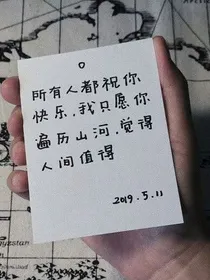 所有人都祝你
快乐,我只愿你
遍历山河,觉得
人间值得
2019.5.11